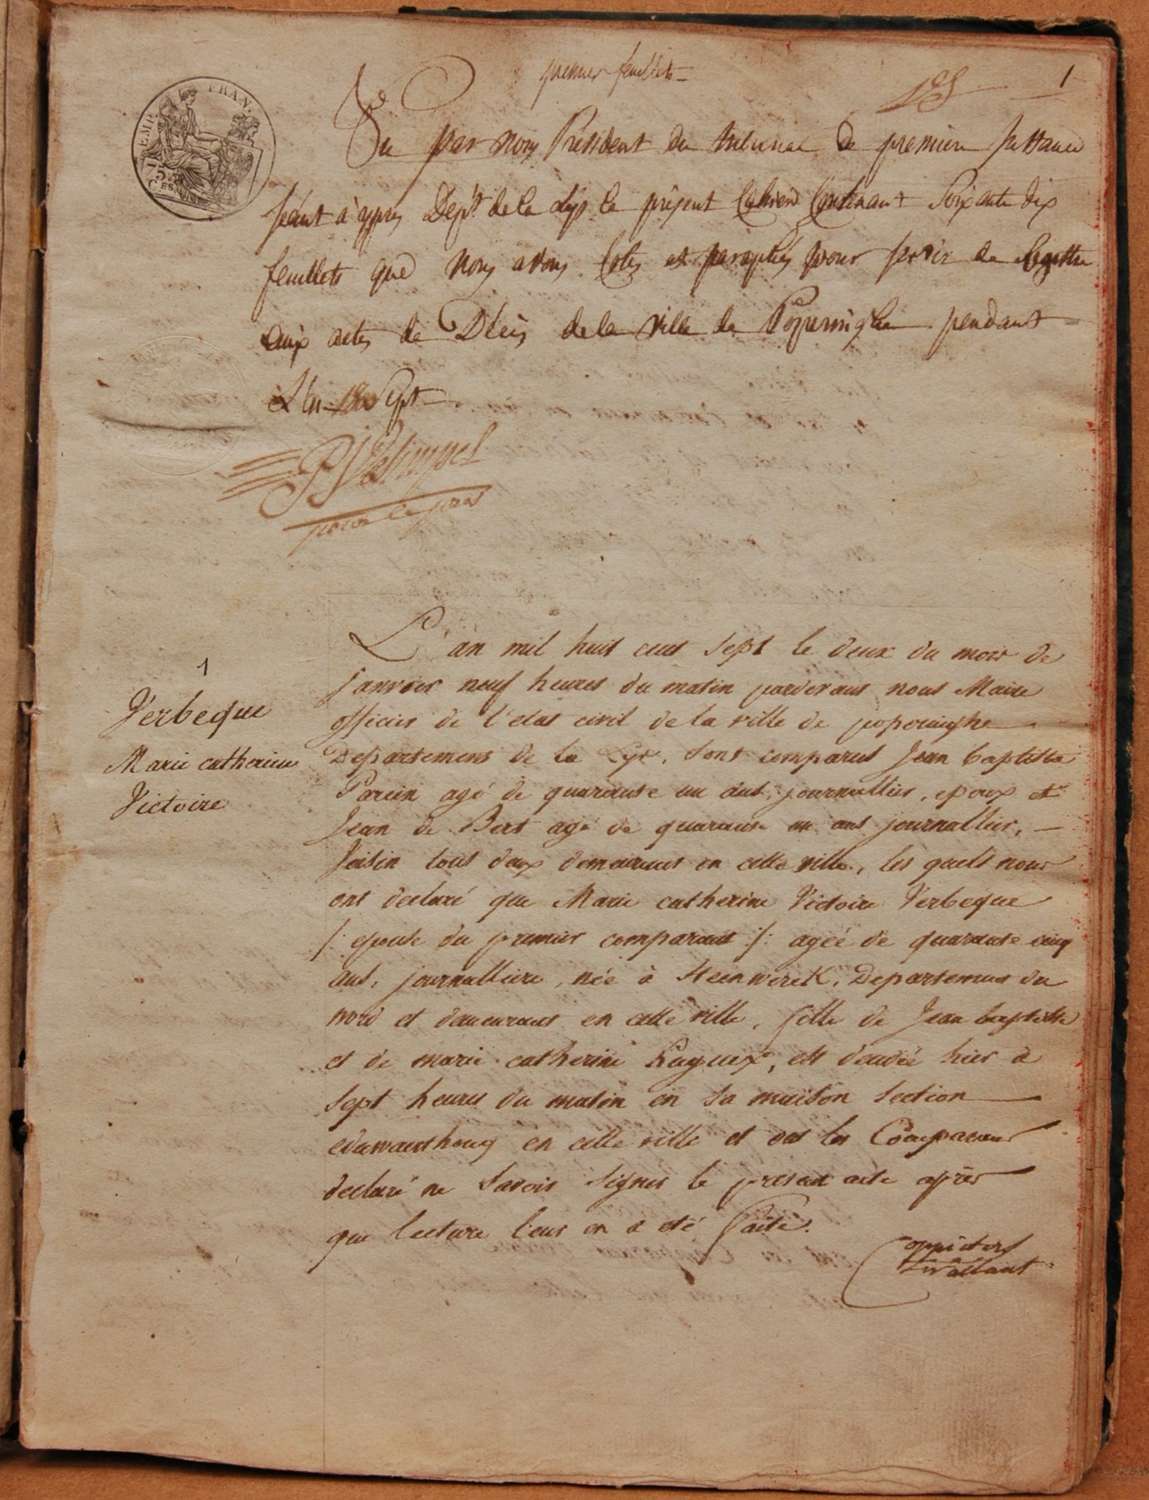 premier feuillet
1
EMP. FRAN.
Vu par nous Président du tribunal de premiere Instance
séant à ypres Dep.t de la Lys le présent Cahier Contenant Soixante dix
feuillets que Nous avons Cotés et paraphés pour servir de Registre
aux actes de Décès de la ville de Poperinghe pendant
L'an 180 Sept
pour le pres
1
Verbeque
Marie catherine
Victoire
L'an mil huit cent sept le deux du mois de
janvier neuf heures du matin pardevant nous Maire
officier de l'etat civil de la ville de poperinghe
Departement de la Lys, sont comparus Jean baptiste
Parein agé de quarante un ans, journallier, epoux et
Jean de Bert agé de quarante un ans journallier,
Voisin tous deux demeurant en cette ville, les quels nous
ont declaré que Marie catherine Victoire Verbeque
/: epouse du premier comparant :/ agée de quarante cinq
ans, journalliere, née à Steenwerck, Departement du
nord et demeurant en cette ville, fille de Jean baptiste
et de marie catherine, est decedée hier à
sept heures du matin en sa maison section
en cette ville et ont les Comparans
declaré ne Savoir Signer le present acte après
que lecture leur en a eté faite.